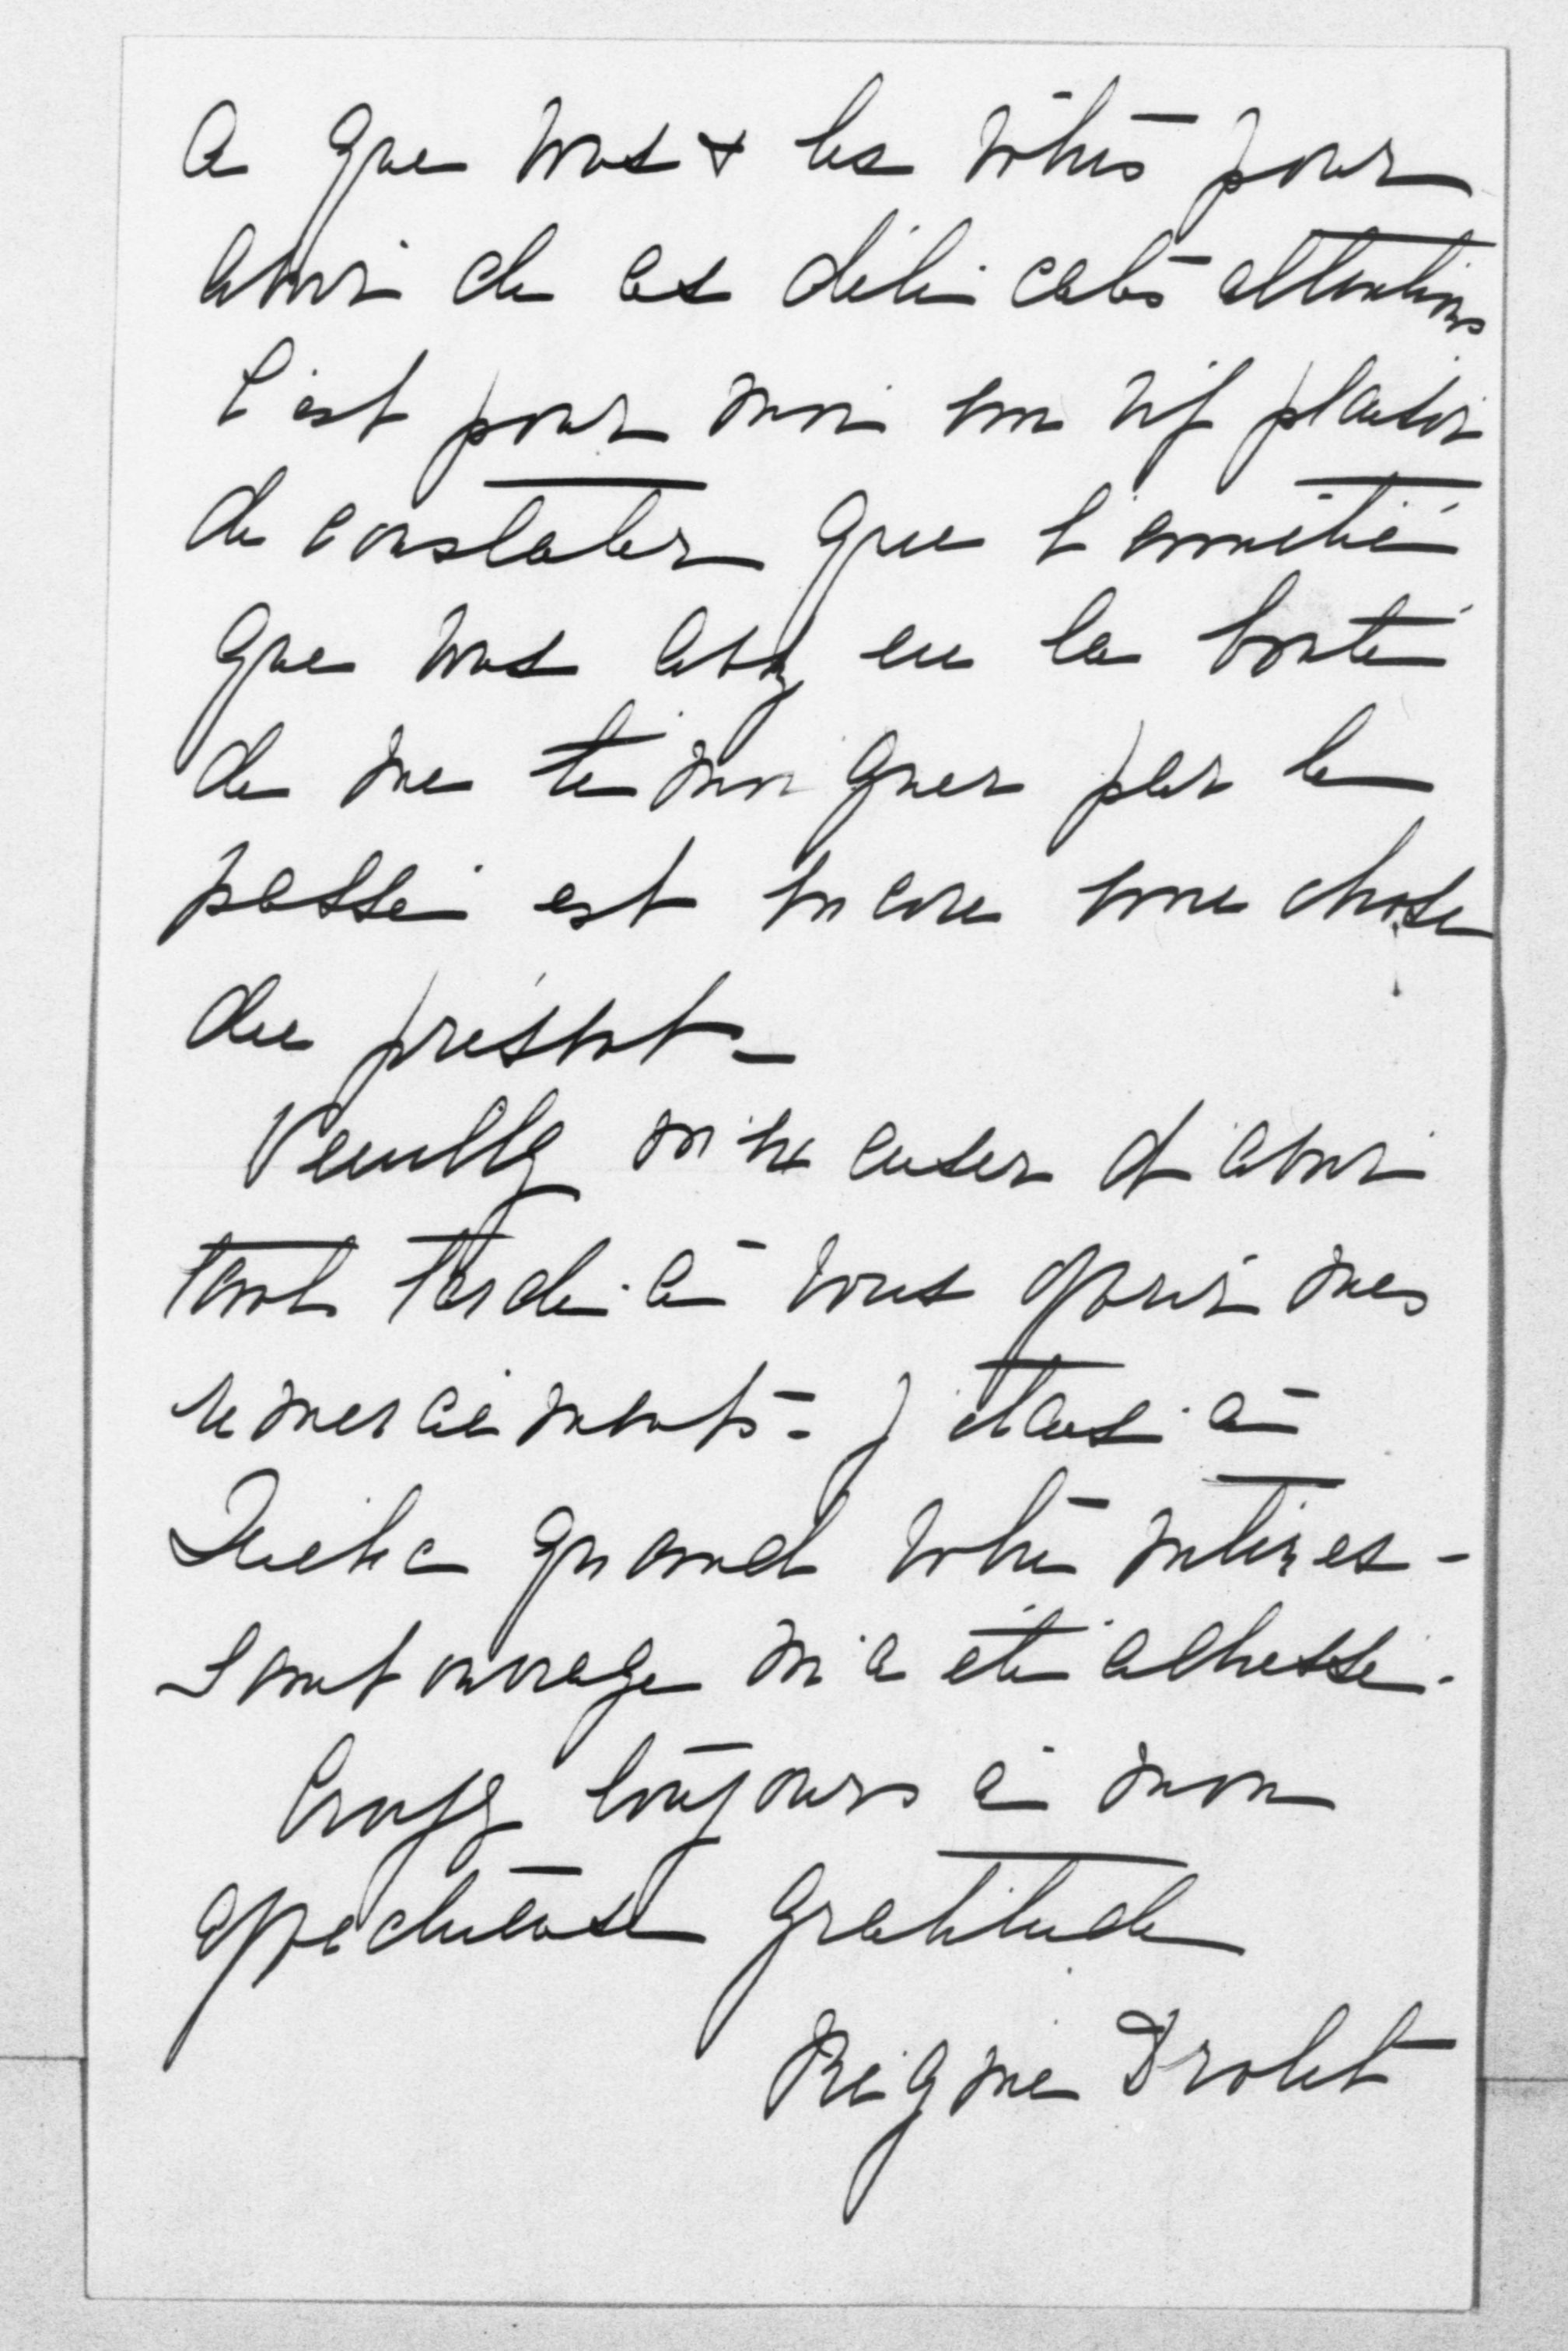 a que vous & les vôtres pour
avoir de ces délicates attentions
C'est pour moi un vif plaisir
de constater que l'amitié
que vous avez eu la bonté
de me témoigner par le
passé est encore une chose
du présent -
Veuillez m'excuser d'avoir
tant tardé à vous offrir mes
remerciements - J'étais à
Québec quand votre intéres-
sant ouvrage m'a été adressé.
Croyez toujours à mon
affectueuse gratitude
Régine Drolet